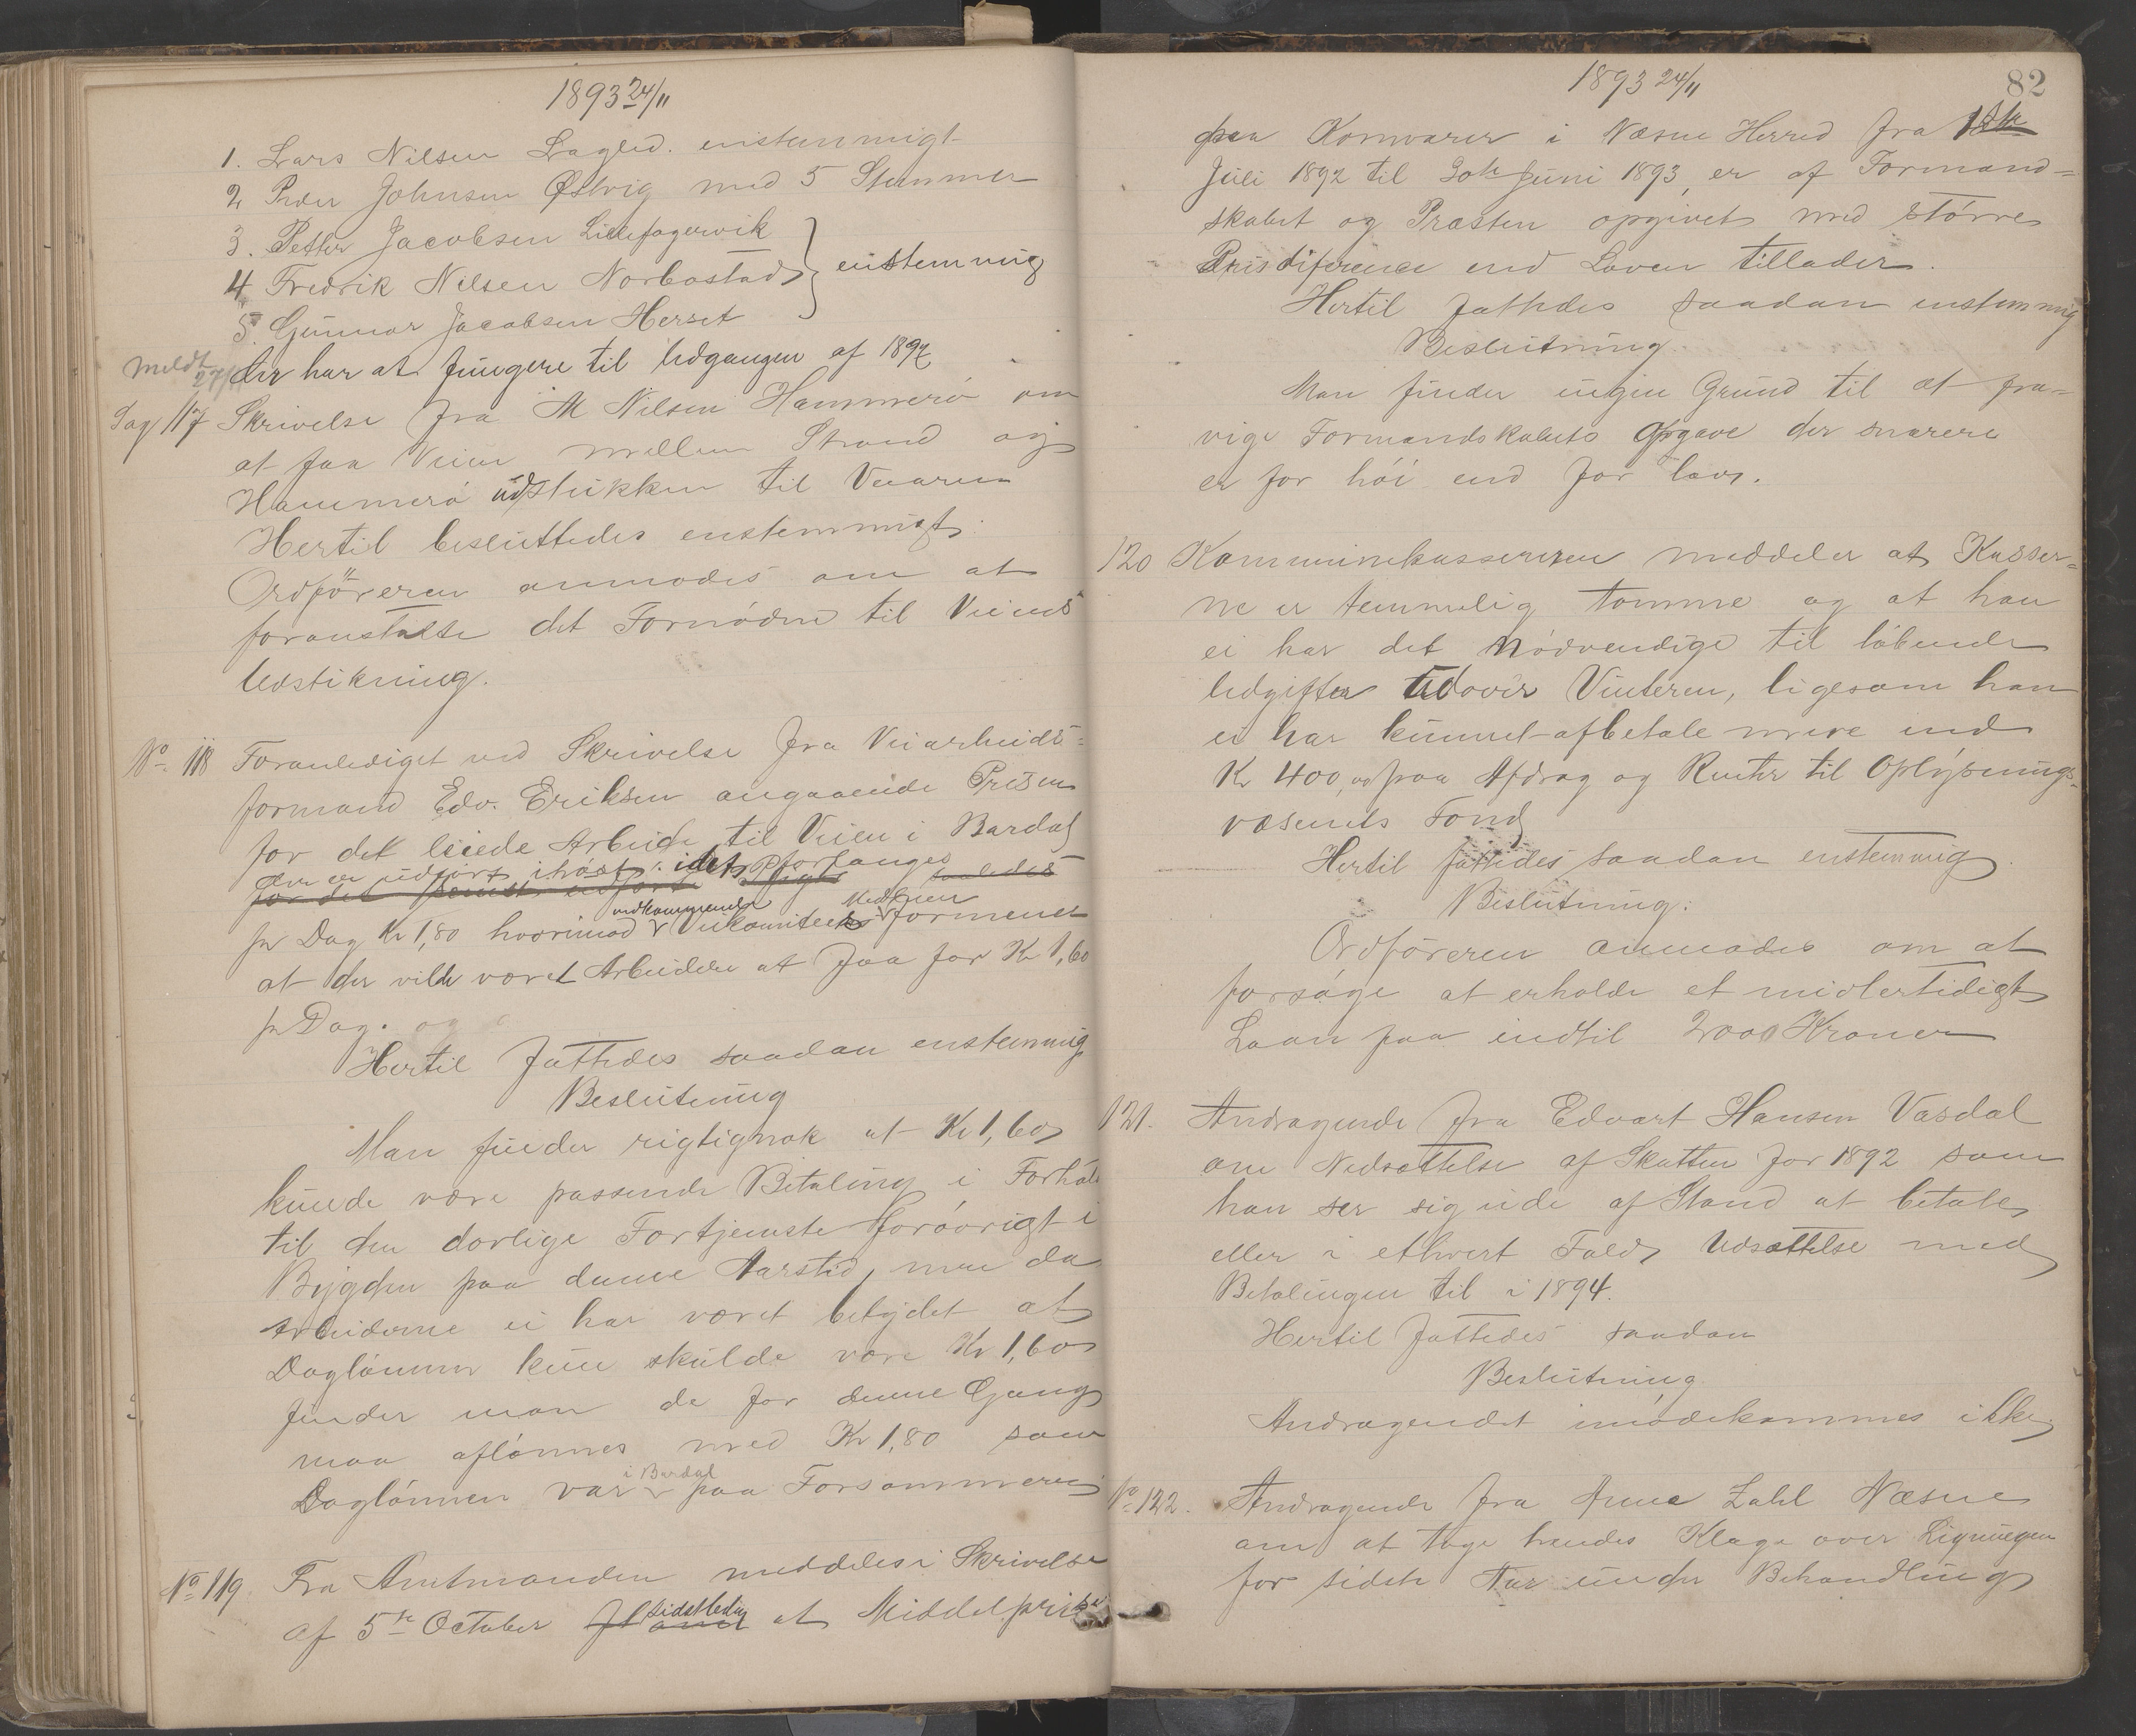 1893 24/11
1. Lars Nilsen Laglid. enstemmigt
2, Peder Johnsen Østvig med 5 Stemmer
3. Petter Jacobsen Lillefagervik
4 Fredrik Nilsen Norbostad } enstemmig
5. Gunnar Jacobsen Herset
Meldt 27/11 der har at fungere til Udgangen af 1897
Sag 117 Skrivelse fra M Nilsen Hammerö om
at faa Veien mellem Strand og
Hammerö udstukken til Vaaren
Hertil besluttedes enstemmigt.
Ordföreren anmodes om at
foranstalte det Fornödne til Veiens
Udstikning.
No 118 Foranlediget ved Skrivelse fra Veiarbeids=
formand Edv. Eriksen angaaende Prisen
for det leiede Arbeide til Veien i Bardal
der er udfört ihöst: idet forlanges
for det senest udfört saaledes
pr Dag Kr 1,80 hvorimod vedkommende Veikomitees Medlem formener
at der vilde været Arbeidere at faa for Kr 1,60
pr Dag. og
Hertil fattedes saadan enstemmig
Beslutning
Man finder rigtignok at Kr 1,60
kunde være passende Betaling i Forhold
til den daarlige Fortjeneste forövrigt i
Bygden paa denne Aarstid, men da
Arbeiderne ei har været betydet at
Daglönnen kun skulde være Kr 1,60
finder man de for denne Gang
maa aflönnes med Kr 1,80 som
Daglönnen var i Bardal paa Forsommeren
No 119 Fra Amtmanden meddeles i Skrivelse
af 5te October sidstleden at Middelprisen
1893 24/11
82
paa Kornvarer i Næsne Herred fra 1ste
Juli 1892 til 30te Juni 1893, er af Formand=
skabet og Præsten opgivet med större
Prisdiference end Loven tillader.
Hertil fattedes saadan enstemmig
Beslutning
Man finder ingen Grund til at fra=
vige Formandskabets Opgave der snarere
er for höi end for lav.
120 Kommunekassereren meddeler at Kasser=
ne er temmelig tomme og at han
ei har det Nödvendige til löbende
Udgifter udover Vinteren, ligesom han
ei har kunnet afbetale mere end
Kr 400,00 paa Afdrag og Renter til Oplysnings=
væsenets Fond
Hertil fattedes saadan enstemmig
Beslutning:
Ordföreren anmodes om at
forsöge at erholde et midlertidigt
Laan paa indtil 2000 Kroner
121. Andragende fra Edvart Hansen Vasdal
om Nedsættelse af Skatten for 1892 som
han ser sig ude af Stand at betale
eller i ethvert Fald Udsættelse med
Betalingen til i 1894.
Hertil fattedes saadan
Beslutning
Andragendet imödekommes ikke
No 122. Andragende fra Anna Zahl Næsne
om at tage hendes Klage over Ligningen
for sidste Aar under Behandling